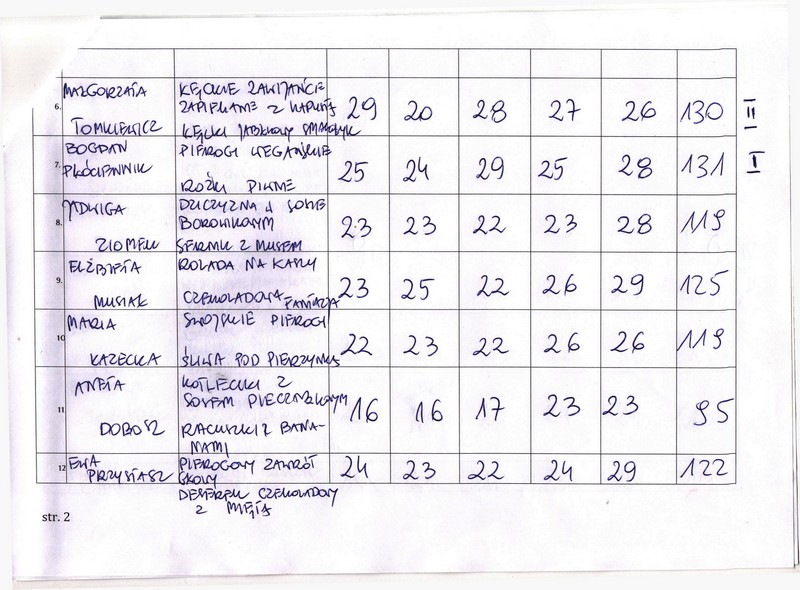 6. MAŁGORZATA TOMKIEWICZ
KĘCKIE ZAWIJAŃCE
ZAPIEKANE Z KAPUSTĄ
KĘCKI JABŁKOWY SMAKOŁYK
29 20 28 27 26 130 II
7. BOGDAN PŁÓCIENNIK
PIEROGI WEGAŃSKIE
ROŻKI PIWNE
25 24 29 25 28 131 I
8. JADWIGA ZIOMEK
DZICZYZNA W SOSIE
BOROWIKOWYM
SERNIK Z MUSEM
23 23 22 23 28 119
9. ELŻBIETA MUSIAŁ
ROLADA NA KASZY
CZEKOLADOWA FANTAZJA
23 25 22 26 29 125
10. MARIA KAZECKA
SWOJSKIE PIEROGI
ŚLIWA POD PIERZYNKĄ
22 23 22 26 26 119
11. ANETA DOBOSZ
KOTLECIKI Z
SOSEM PIECZARKOWYM
RACUSZKI Z BANA-
NAMI
16 16 17 23 23 95
12. EWA PRZYSTASZ
PIEROGOWY ZAWRÓT
GŁOWY
DESEREK CZEKOLADOWY
Z MIĘTĄ
24 23 22 24 29 122
str. 2